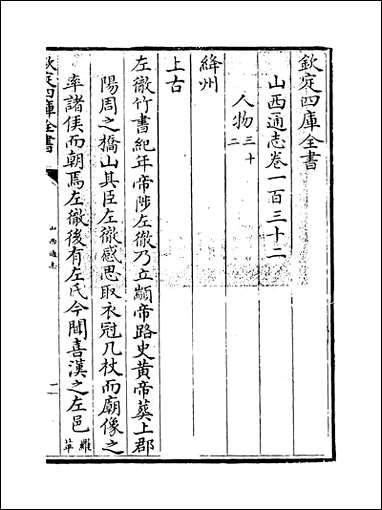 欽定四庫全書
山西通志卷一百三十二
人物三十二
絳州
上古
左徹竹書紀年帝陟左徹乃立顓帝路史黄帝葬上郡
陽周之橋山其臣左徹感思取衣冠几杖而廟像之
率諸侯而朝焉左徹後有左氏今聞喜漢之左邑羅苹
欽定四庫全書
山西通志